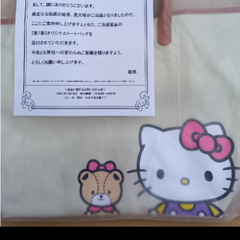 まして、誠にありがとうございます。
厳正なる抽選の結果、貴方様がご当選となりましたので、
ここにご案内申し上げますとともに、ご当選賞品の
【第1賞】オリジナルトートバッグを
送付させていただきます。
今後とも弊社への変わらぬご愛顧を賜りますよう、
よろしくお願い申し上げます。
敬具